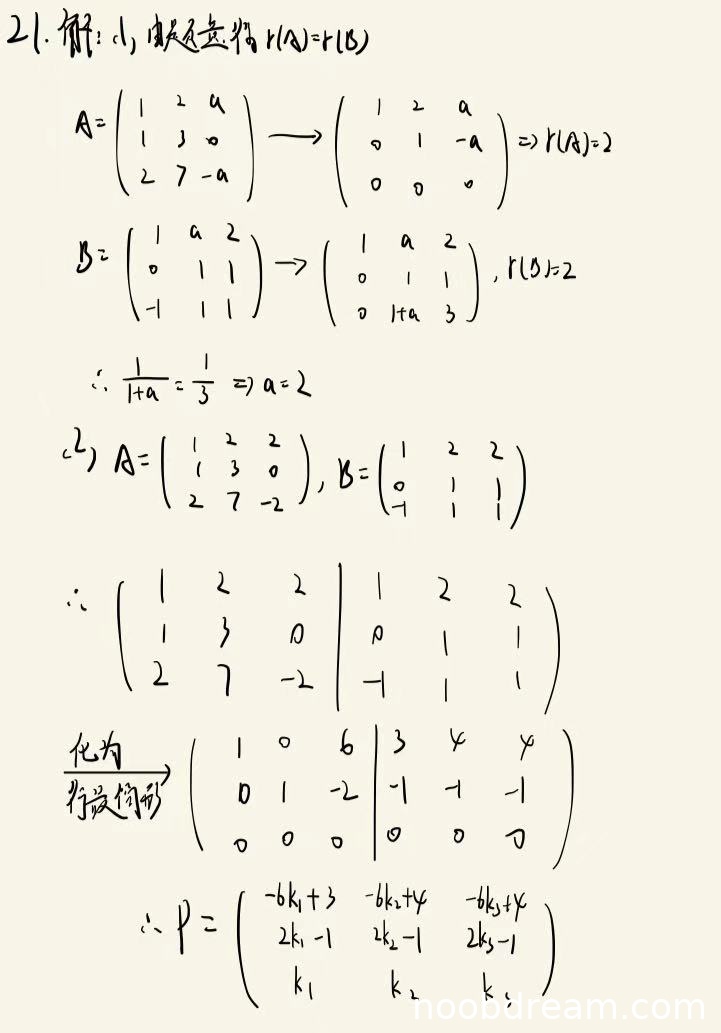 21. 解: (1) 由题意得 r(A)=r(B)
A= ( 1 2 a ; 1 3 0 ; 2 7 -a ) → ( 1 2 a ; 0 1 -a ; 0 0 0 ) ⇒ r(A)=2
B= ( 1 a 2 ; 0 1 1 ; -1 1 1 ) → ( 1 a 2 ; 0 1 1 ; 0 1+a 3 ), r(B)=2
∴ 1/(1+a) = 1/3 ⇒ a=2
(2) A= ( 1 2 2 ; 1 3 0 ; 2 7 -2 ), B= ( 1 2 2 ; 0 1 1 ; -1 1 1 )
∴ ( 1 2 2 | 1 2 2 ; 1 3 0 | 0 1 1 ; 2 7 -2 | -1 1 1 )
化为行最简形 → ( 1 0 6 | 3 4 4 ; 0 1 -2 | -1 -1 -1 ; 0 0 0 | 0 0 0 )
∴ P = ( -6k₁+3 -6k₂+4 -6k₃+4 ; 2k₁-1 2k₂-1 2k₃-1 ; k₁ k₂ k₃ )
noobdream.com